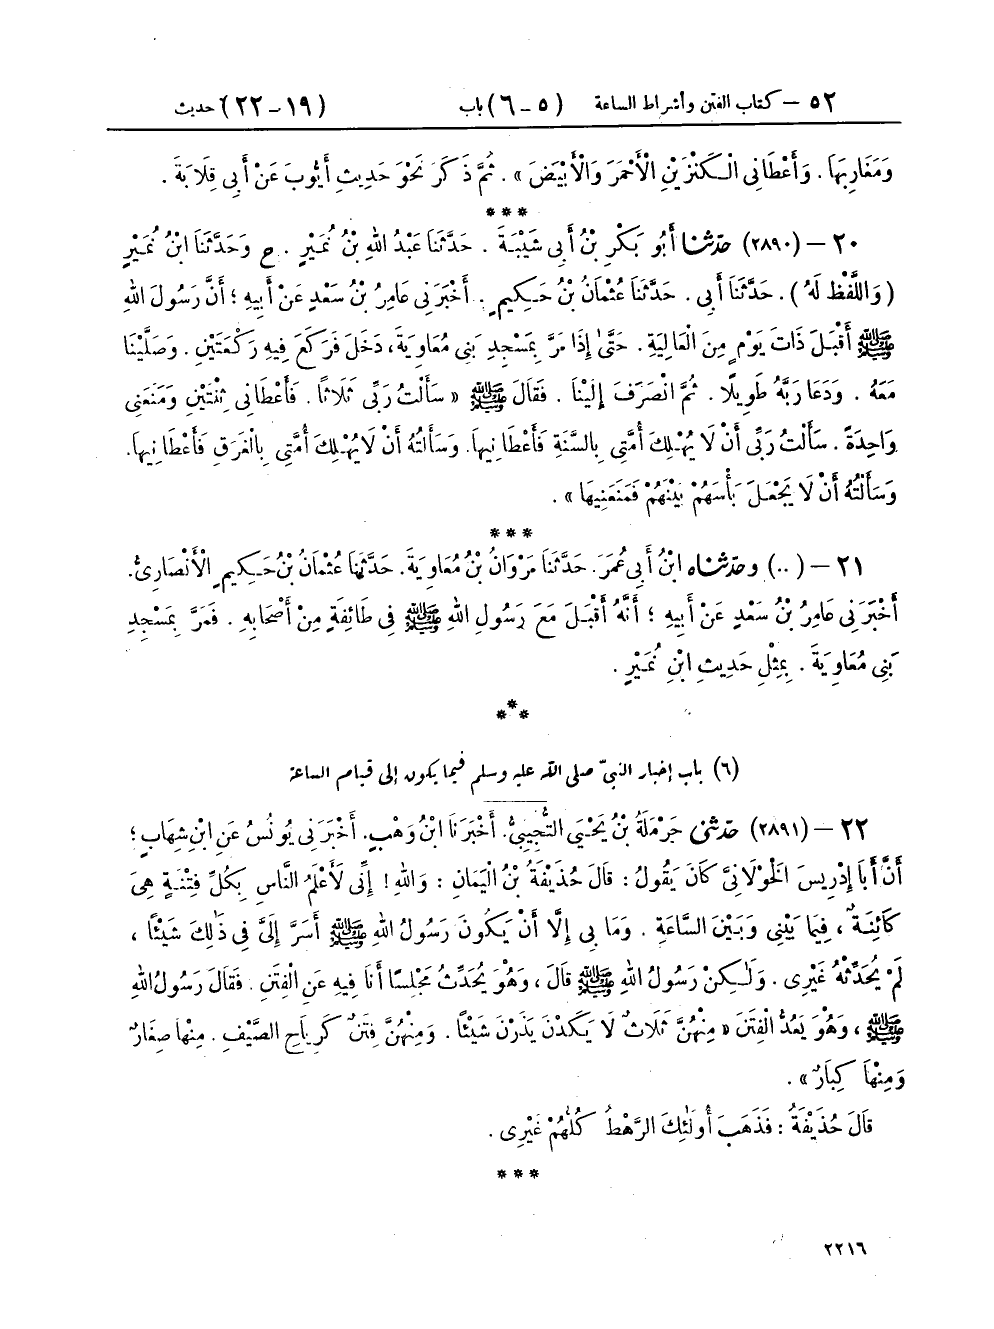 ٥٢ – كتاب الفتن وأشراط الساعة (٥ – ٦) باب (١٩ – ٢٢) حديث
وَمَغَارِبَهَا. وَأَعْطَانِي الْكَنْزَيْنِ الْأَحْمَرَ وَالْأَبْيَضَ». ثُمَّ ذَكَرَ نَحْوَ حَدِيثِ أَيُّوبَ عَنْ أَبِي قِلَابَةَ.
***
٢٠ – (٢٨٩٠) حَدَّثَنَا أَبُو بَكْرِ بْنُ أَبِي شَيْبَةَ. حَدَّثَنَا عَبْدُ اللهِ بْنُ نُمَيْرٍ. ح وَحَدَّثَنَا ابْنُ نُمَيْرٍ
(وَاللَّفْظُ لَهُ). حَدَّثَنَا أَبِي. حَدَّثَنَا عُثْمَانُ بْنُ حَكِيمٍ. أَخْبَرَنِي عَامِرُ بْنُ سَعْدٍ عَنْ أَبِيهِ؛ أَنَّ رَسُولَ اللهِ
ﷺ أَقْبَلَ ذَاتَ يَوْمٍ مِنَ الْعَالِيَةِ. حَتَّىٰ إِذَا مَرَّ بِمَسْجِدِ بَنِي مُعَاوِيَةَ، دَخَلَ فَرَكَعَ فِيهِ رَكْعَتَيْنِ. وَصَلَّيْنَا
مَعَهُ. وَدَعَا رَبَّهُ طَوِيلًا. ثُمَّ انْصَرَفَ إِلَيْنَا. فَقَالَ ﷺ «سَأَلْتُ رَبِّي ثَلَاثًا. فَأَعْطَانِي ثِنْتَيْنِ وَمَنَعَنِي
وَاحِدَةً. سَأَلْتُ رَبِّي أَنْ لَا يُهْلِكَ أُمَّتِي بِالسَّنَةِ فَأَعْطَانِيهَا. وَسَأَلْتُهُ أَنْ لَا يُهْلِكَ أُمَّتِي بِالْغَرَقِ فَأَعْطَانِيهَا.
وَسَأَلْتُهُ أَنْ لَا يَجْعَلَ بَأْسَهُمْ بَيْنَهُمْ فَمَنَعَنِيهَا».
***
٢١ – (..) وحَدَّثَنَاهُ ابْنُ أَبِي عُمَرَ. حَدَّثَنَا مَرْوَانُ بْنُ مُعَاوِيَةَ. حَدَّثَنَا عُثْمَانُ بْنُ حَكِيمٍ الْأَنْصَارِيُّ.
أَخْبَرَنِي عَامِرُ بْنُ سَعْدٍ عَنْ أَبِيهِ؛ أَنَّهُ أَقْبَلَ مَعَ رَسُولِ اللهِ ﷺ فِي طَائِفَةٍ مِنْ أَصْحَابِهِ. فَمَرَّ بِمَسْجِدِ
بَنِي مُعَاوِيَةَ. بِمِثْلِ حَدِيثِ ابْنِ نُمَيْرٍ.
***
(٦) باب إخبار النبيّ صلى الله عليه وسلم فيما يكون إلى قيام الساعة
٢٢ – (٢٨٩١) حَدَّثَنِي حَرْمَلَةُ بْنُ يَحْيَى التُّجِيبِيُّ. أَخْبَرَنَا ابْنُ وَهْبٍ. أَخْبَرَنِي يُونُسُ عَنِ ابْنِ شِهَابٍ؛
أَنَّ أَبَا إِدْرِيسَ الْخَوْلَانِيَّ كَانَ يَقُولُ: قَالَ حُذَيْفَةُ بْنُ الْيَمَانِ: وَاللهِ! إِنِّي لَأَعْلَمُ النَّاسِ بِكُلِّ فِتْنَةٍ هِيَ
كَائِنَةٌ، فِيمَا بَيْنِي وَبَيْنَ السَّاعَةِ. وَمَا بِي إِلَّا أَنْ يَكُونَ رَسُولُ اللهِ ﷺ أَسَرَّ إِلَيَّ فِي ذَٰلِكَ شَيْئًا،
لَمْ يُحَدِّثْهُ غَيْرِي. وَلَٰكِنْ رَسُولُ اللهِ ﷺ قَالَ، وَهُوَ يُحَدِّثُ مَجْلِسًا أَنَا فِيهِ عَنِ الْفِتَنِ. فَقَالَ رَسُولُ اللهِ
ﷺ، وَهُوَ يَعُدُّ الْفِتَنَ «مِنْهُنَّ ثَلَاثٌ لَا يَكَدْنَ يَذَرْنَ شَيْئًا. وَمِنْهُنَّ فِتَنٌ كَرِيَاحِ الصَّيْفِ. مِنْهَا صِغَارٌ
وَمِنْهَا كِبَارٌ».
قَالَ حُذَيْفَةُ: فَذَهَبَ أُولَٰئِكَ الرَّهْطُ كُلُّهُمْ غَيْرِي.
***
٢٢١٦